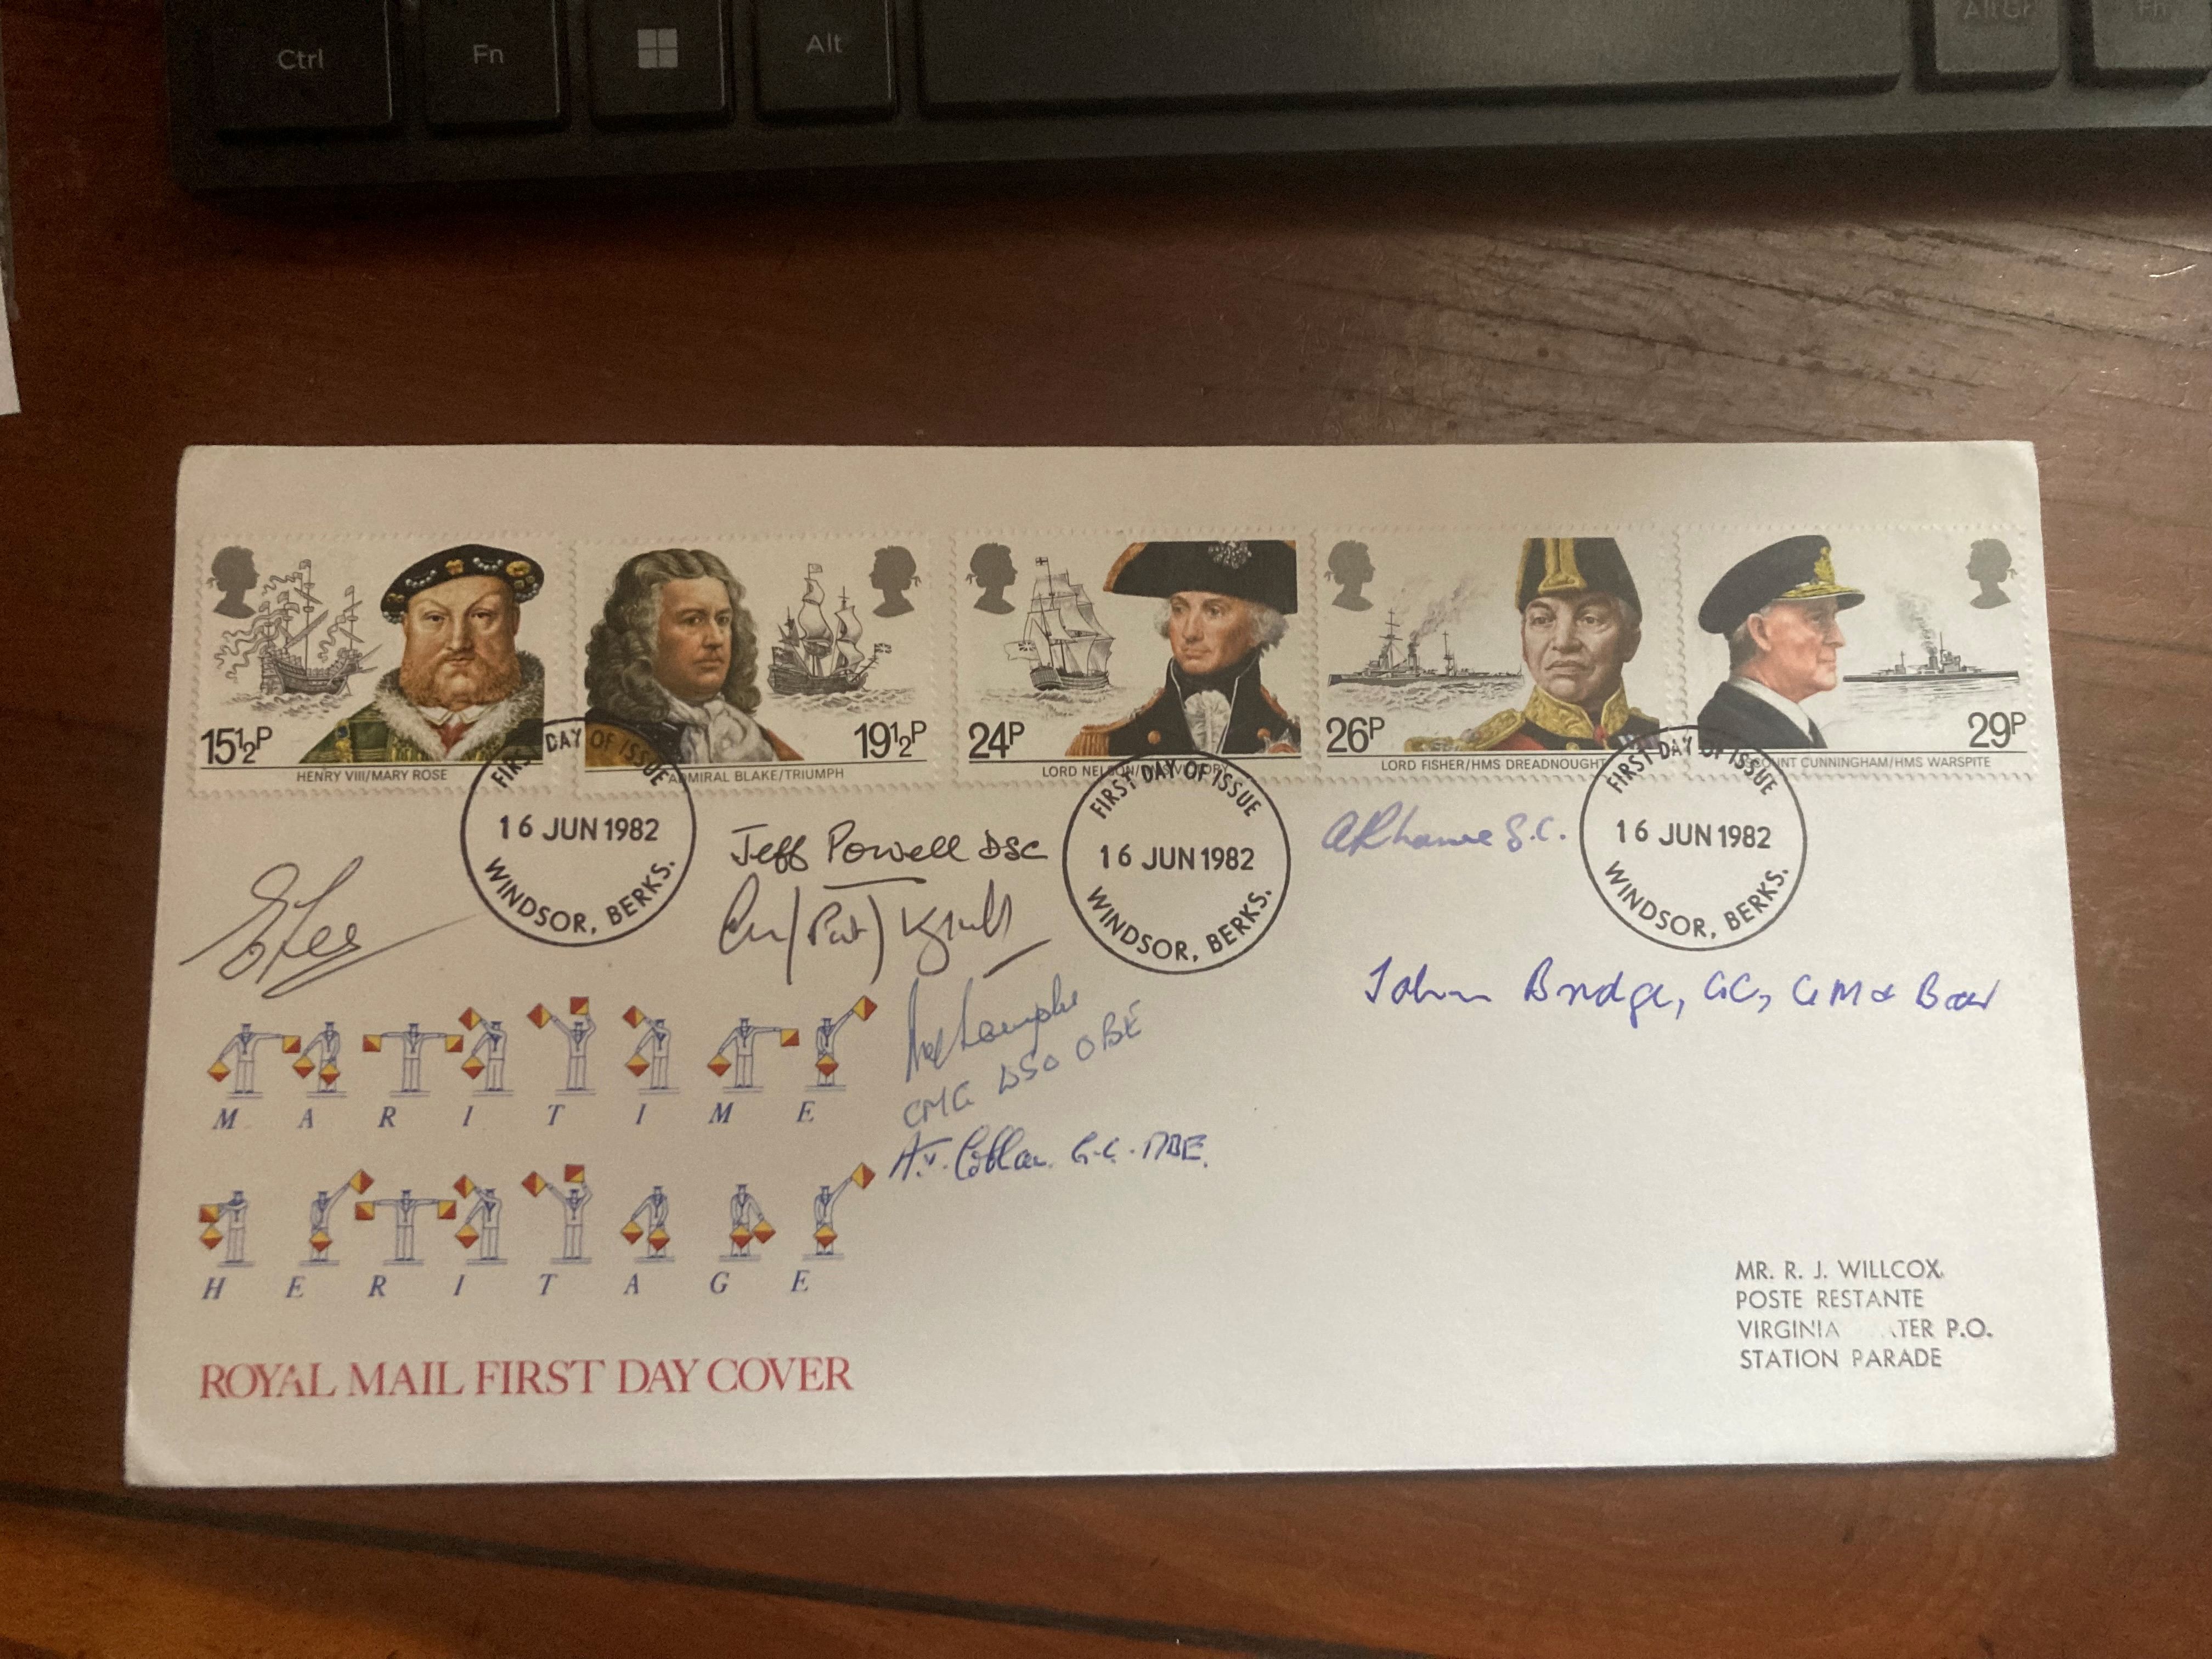 Ctrl Fn Alt Alt Gr Fn
15½P
HENRY VIII/MARY ROSE
19½P
ADMIRAL BLAKE/TRIUMPH
24P
LORD NELSON/HMS VICTORY
26P
LORD FISHER/HMS DREADNOUGHT
29P
COUNT CUNNINGHAM/HMS WARSPITE
FIRST DAY OF ISSUE
16 JUN 1982
WINDSOR, BERKS.
FIRST DAY OF ISSUE
16 JUN 1982
WINDSOR, BERKS.
FIRST DAY OF ISSUE
16 JUN 1982
WINDSOR, BERKS.
Jeff Powell DSC
(Pat)
G.C.
John Bridge, GC, GM & Bar
CMG DSO OBE
A.V. G.C. MBE.
M A R I T I M E
H E R I T A G E
ROYAL MAIL FIRST DAY COVER
MR. R. J. WILLCOX,
POSTE RESTANTE
VIRGINIA TER P.O.
STATION PARADE